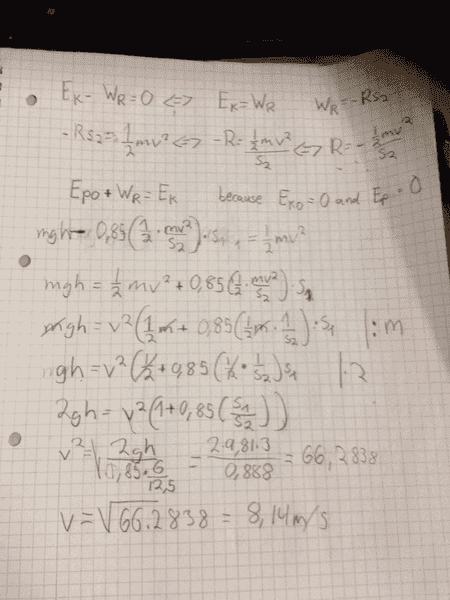 E_K - W_R = 0 <=> E_K = W_R   W_R = -Rs_2
-Rs_2 = 1/2 mv² <=> -R = (1/2 mv²)/s_2 <=> R = - (1/2 mv²)/s_2
E_P0 + W_R = E_K   because E_K0 = 0 and E_P = 0
mgh - 0,85(1/2 · mv²/s_2) · s_1 = 1/2 mv²
mgh = 1/2 mv² + 0,85(1/2 · mv²/s_2) · s_1
mgh = v²(1/2 m + 0,85(1/2 m · 1/s_2) · s_1   |: m
gh = v²(1/2 + 0,85(1/2 · 1/s_2)s_1   |· 2
2gh = v²(1 + 0,85(s_1/s_2))
v² = √(2gh / (0,85 · 6/12,5)) = (2 · 9,81 · 3)/0,888 = 66,2838
v = √66.2838 = 8,14 m/s